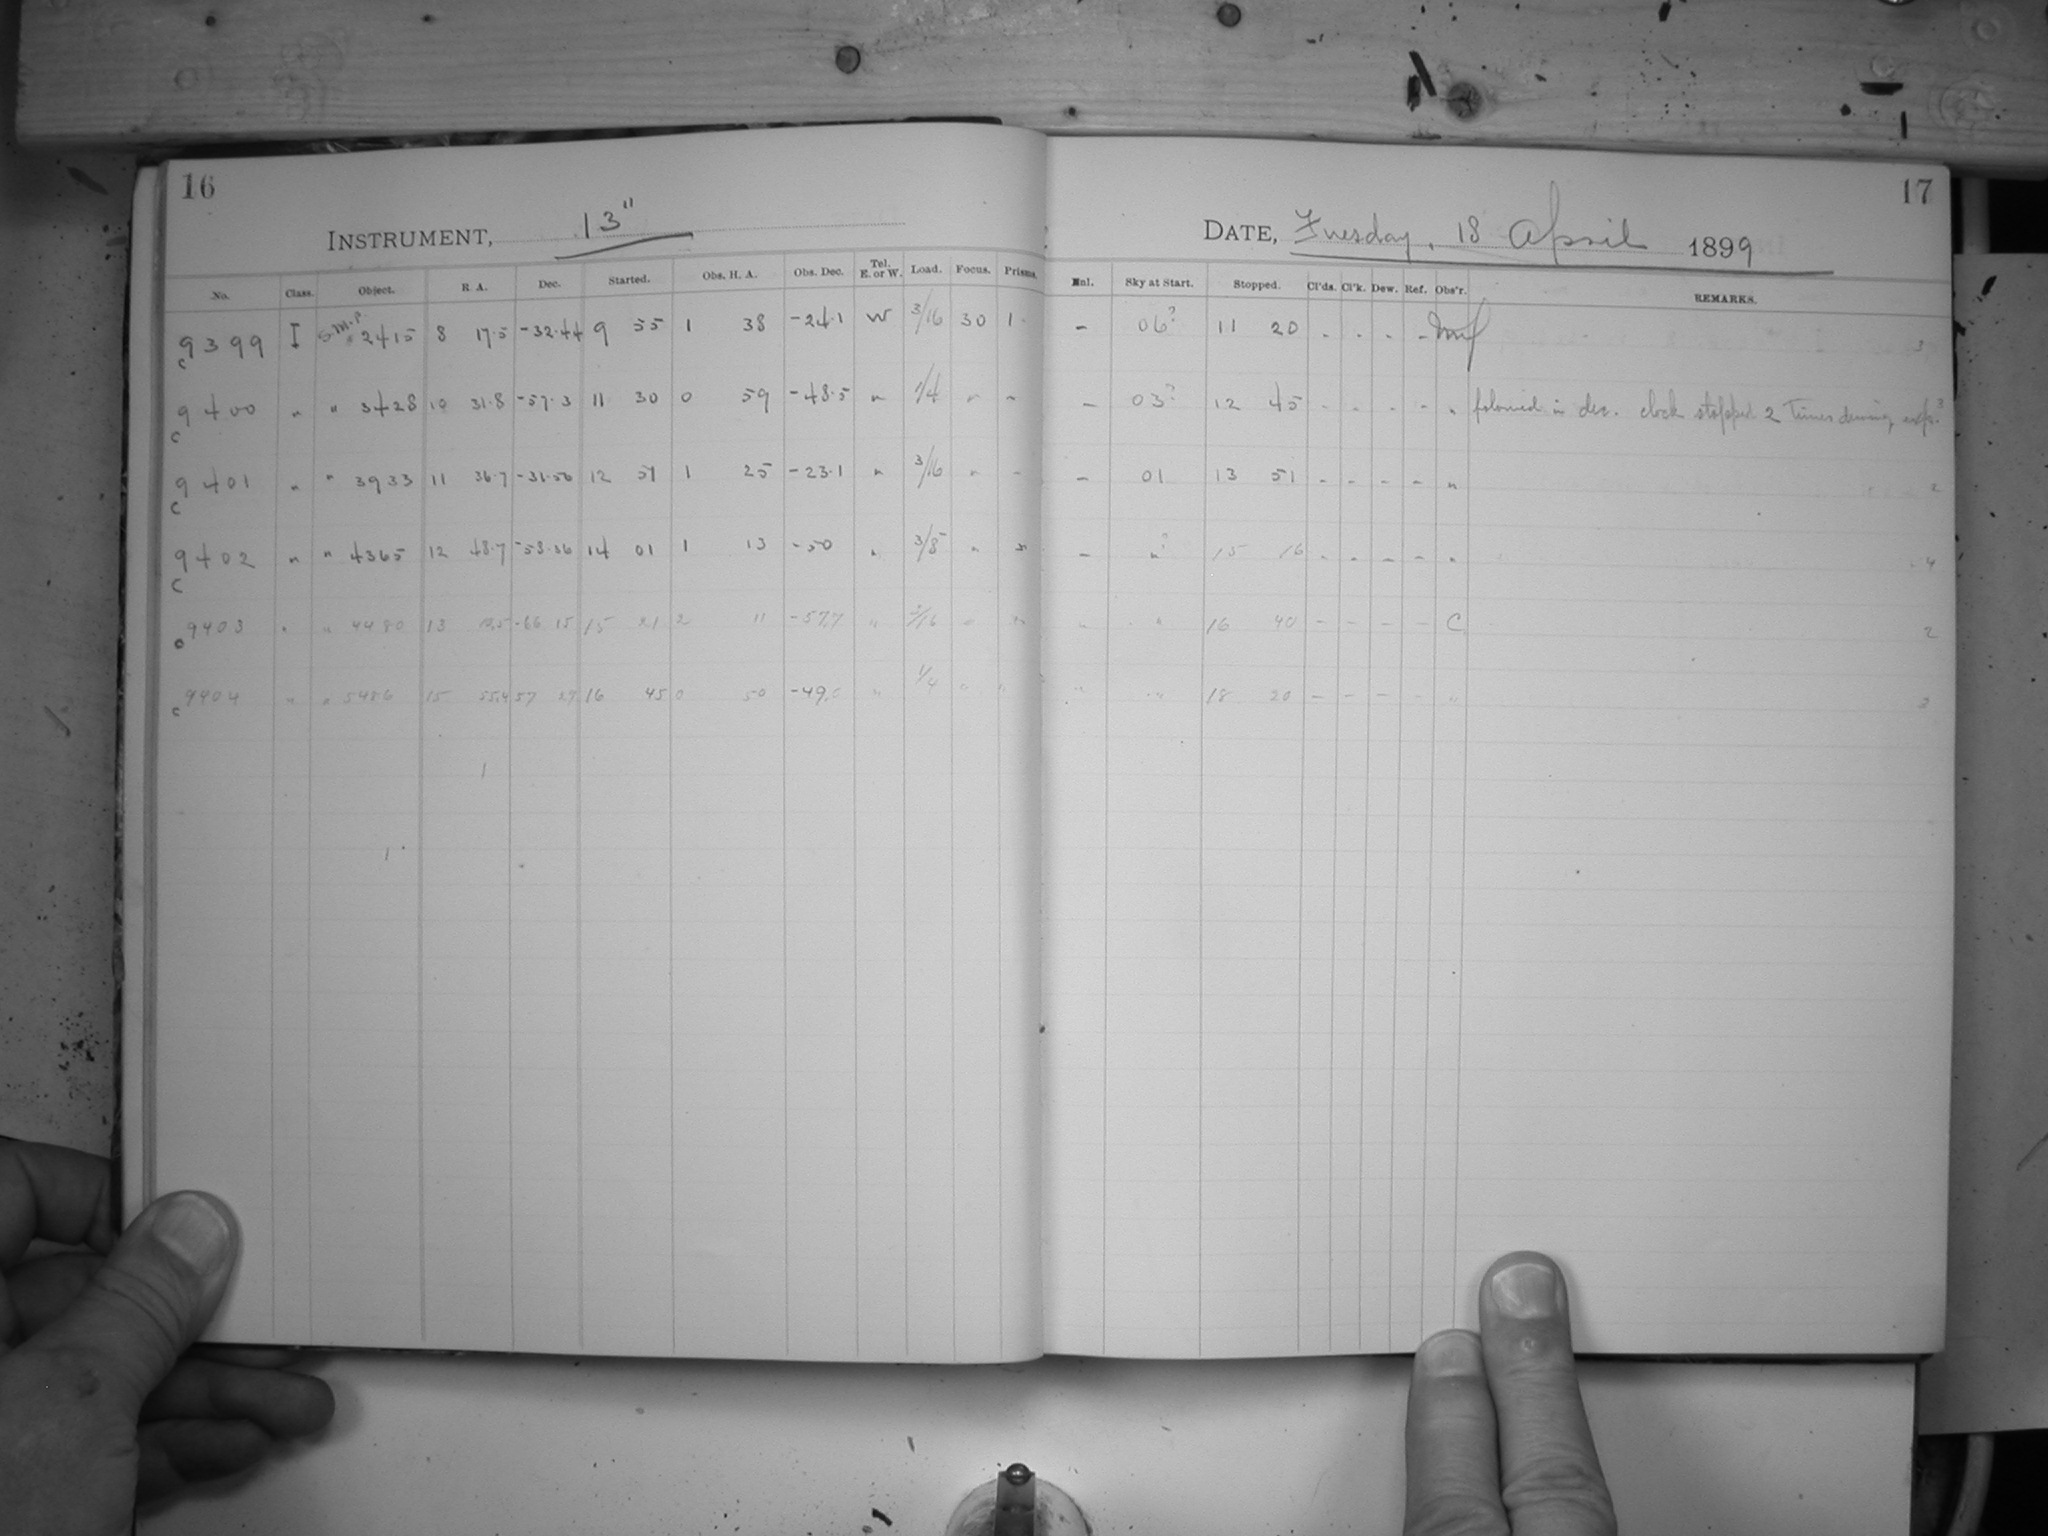 16
INSTRUMENT, 13"
No. Class. Object. R. A. Dec. Started. Obs. H. A. Obs. Dec. Tel. E. or W. Load. Focus. Prisms.
9399 I S.M.P. 2415 8 17.5 -32.44 9 55 1 38 -24.1 W 3/16 30 1
c
9400 " " 3428 10 31.8 -57.3 11 30 0 59 -48.5 " 1/4 " "
c
9401 " " 3933 11 36.7 -31.56 12 51 1 25 -23.1 " 3/16 " "
c
9402 " " 4365 12 48.7 -58.36 14 01 1 13 -50 " 3/8 " "
c
9403 " " 4480 13 -66 15 15 21 2 11 -57.7 " 3/16 " "
c
9404 " " 5486 15 55.4 57 27 16 45 0 50 -49. " 1/4 " "
c
17
DATE, Tuesday, 18 April 1899
Enl. Sky at Start. Stopped. Cl'ds. Cl'k. Dew. Ref. Obs'r. REMARKS.
- 06? 11 20 - - - - 3
- 03? 12 45 - - - - " folowed in dec. clock stopped 2 times during exp. 3
- 01 13 51 - - - - " 2
- "? 15 16 - - - - " 4
" " 16 40 - - - - C 2
" " 18 20 - - - - " 3